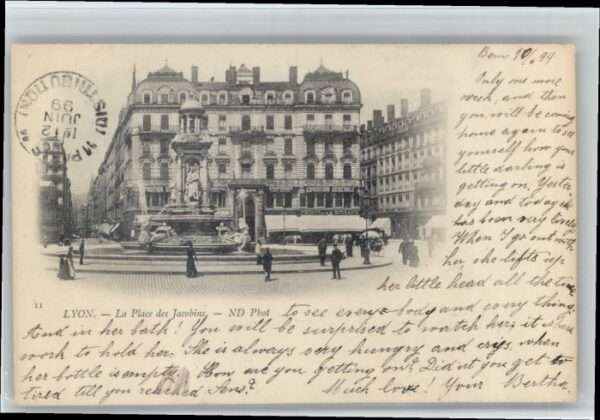 Bern 10/6 99
Only one more
week, and then
you will be coming
home again to see
yourself how your
little darling is
getting on. Yester-
day and today it
has been very lovely.
When I go out with
her she lifts up
her little head all the time
to see every body and every thing.
And in her bath! You will be surprised to watch her, it is hard
work to hold her. She is always very hungry and crys, when
her bottle is empty. How are you getting on? Did n't you get to
tired till you reached Sens?
Much love! Your Bertha.
PARIS DISTRIBUTION
12
JUIN
99
11
LYON. — La Place des Jacobins. — ND Phot